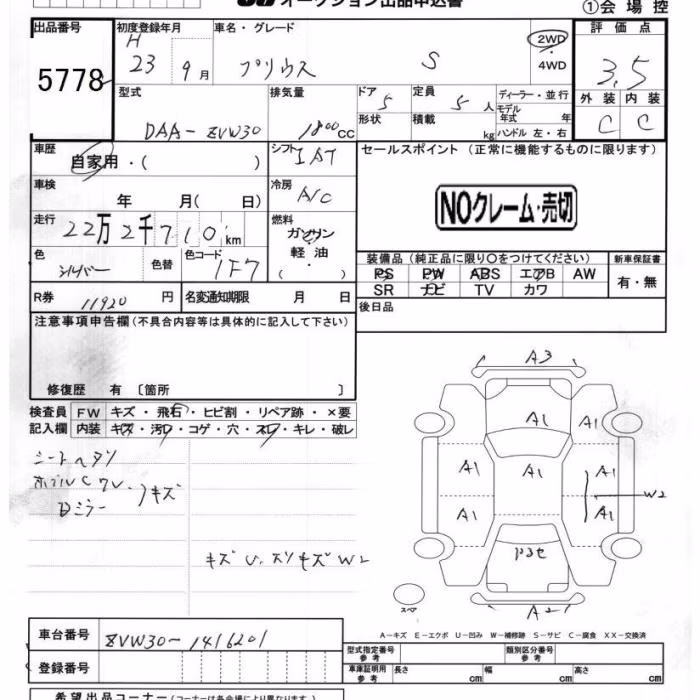 オークション出品申込書
①会場控
出品番号
5778
初度登録年月
H
23 9月
車名・グレード
プリウス S
2WD
・
4WD
評価点
3.5
型式
DAA-ZVW30
排気量
1800cc
ドア
5
形状
定員
5人
積載
kg
ディーラー・並行
モデル
年式 年
ハンドル 左・右
外装 内装
C C
車歴
自家用・( )
シフト
IAT
セールスポイント (正常に機能するものに限ります)
NOクレーム・売切
車検
年 月( 日)
冷房
A/C
走行
22万2千710km
燃料
ガソリン
・
軽油
( )
色
シルバー
色替
色コード
1F7
装備品 (純正品に限り〇をつけてください)
PS PW ABS エアB AW
SR ナビ TV カワ
新車保証書
有・無
R券 11920円
名変通知期限 月 日
後日品
注意事項申告欄(不具合内容等は具体的に記入して下さい)
修復歴 有 〔箇所 〕
検査員
記入欄
FW キズ・飛石・ヒビ割・リペア跡・×要
内装 キズ・汚れ・コゲ・穴・スレ・キレ・破レ
シートヘタリ
Dミラー
キズ
キズ U. スリキズ W2
A3
A1
A1
A1
A1
A1
A1
A1
W2
A2
スペア
A-キズ E-エクボ U-凹み W-補修跡 S-サビ C-腐食 XX-交換済
車台番号
ZVW30-1416201
登録番号
型式指定番号
参考
類別区分番号
参考
車庫証明用
参考
長さ cm
幅 cm
高さ cm
希望出品コーナー(コーナーは各会場により異なります)